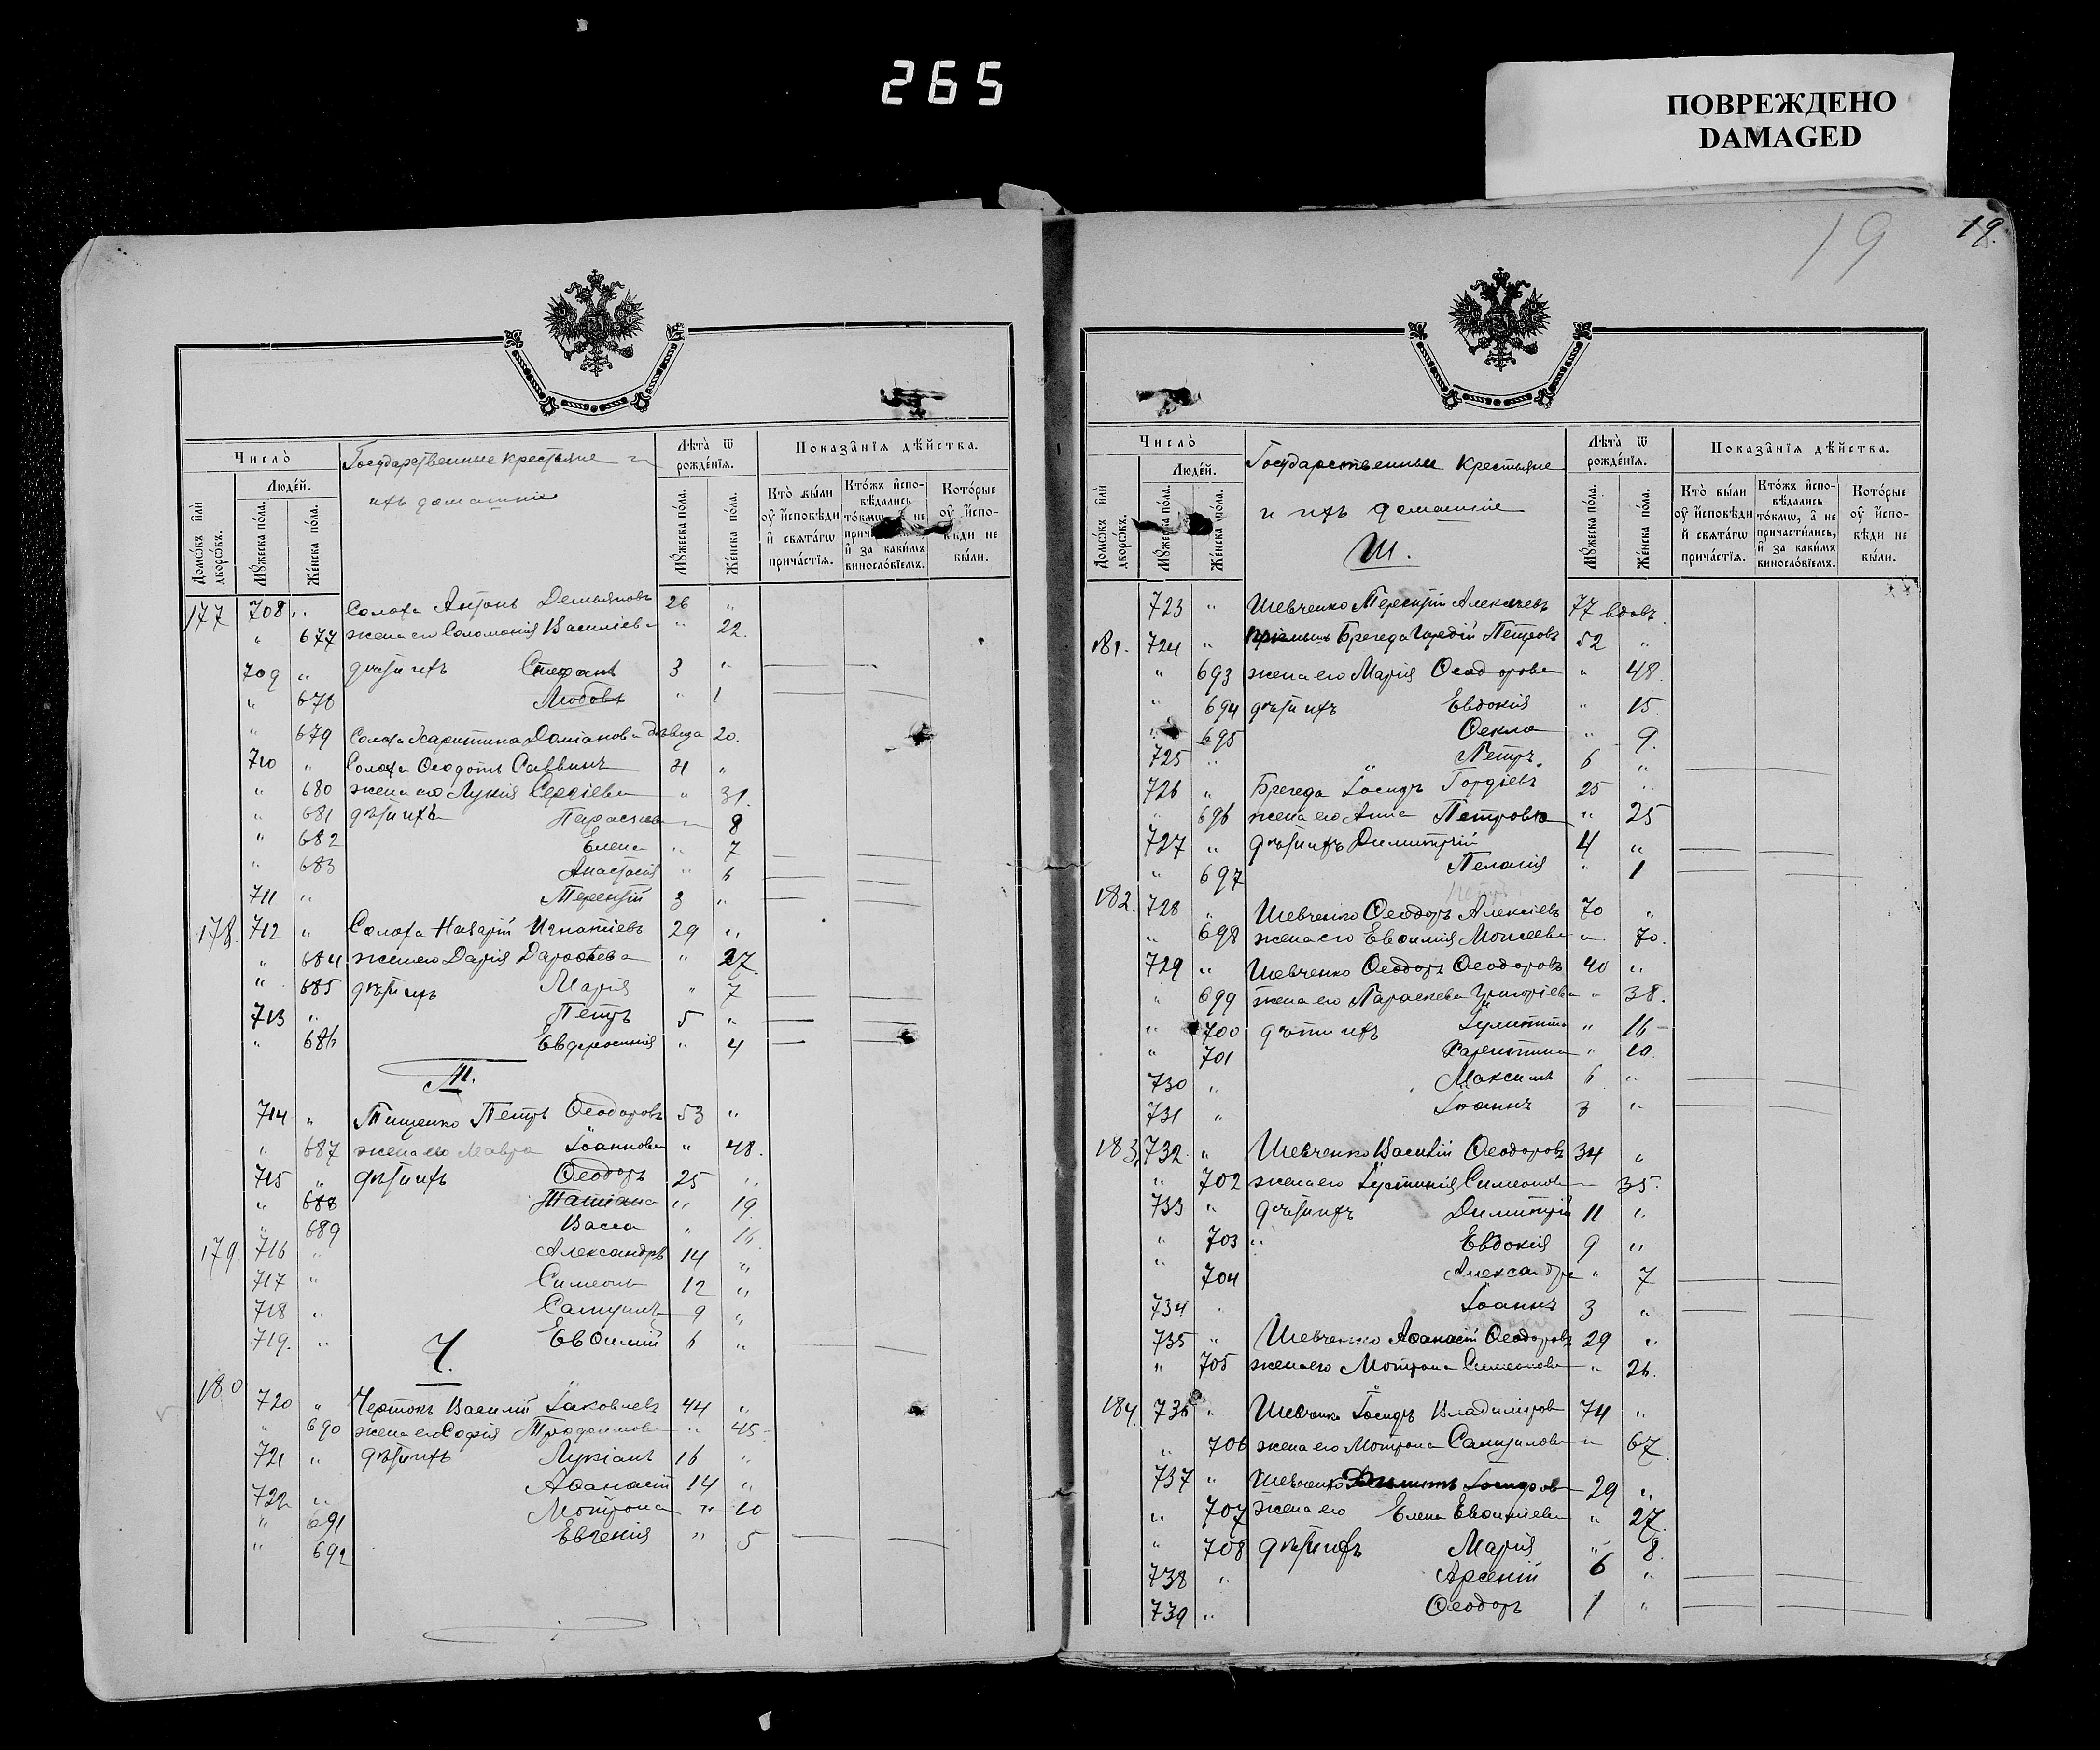 265
ПОВРЕЖДЕНО
DAMAGED
Число̀
Людей.
Домѡ́въ и҆лѝ дворѡ́въ.
Мꙋ́жеска по́ла.
Же́нска по́ла.
Государственные крестьяне и
ихъ домашніе
Лѣта̀ ѿ рожде́нїѧ.
Мꙋ́жеска по́ла.
Же́нска по́ла.
Показа̑нїѧ дѣ́йства.
Кто̀ бы́ли оу҆ и҆сповѣди и҆ свѧта́гѡ прича́стїѧ.
Кто́жъ и҆спо-вѣ́дались то́кмѡ, не и҆ за каки́мъ винослові́емъ.
Кото́рые оу҆ и҆спо-вѣди не бы́ли.
177 708 " Солоха Антонъ Демьяновъ 26 "
" 677 жена его Соломонія Василіева " 22
709 " дѣти ихъ Стефанъ 3 "
" 678 Любовь " 1
" 679 Солоха Харитина Даміанова дѣвица 20.
710 " Солоха Ѳеодотъ Саввинъ 31 "
" 680 жена его Лукія Сергіева " 31.
" 681 дѣти ихъ Параскева " 8
" 682 Елена " 7
" 683 Анастасія " 6
711 " Терентій 3 "
178. 712 " Солоха Назарій Игнатіевъ 29 "
" 684 жена его Дарія " 27
" 685 дѣти ихъ Марія " 7
713 " Петръ 5 "
" 686 Евфросинія " 4
Т.
714 " Тищенко Петръ Ѳеодоровъ 53 "
" 687 жена его Мавра Іоаннова " 48.
715 " дѣти ихъ Ѳеодоръ 25 "
" 688 Татіана " 19.
" 689 Васса " 16.
179. 716 " Александръ 14 "
717 " Симеонъ 12 "
718 " Самуилъ 9 "
719. " Евѳимій 6 "
Ч.
180 720 " Чертокъ Василій Іаковлевъ 44 "
" 690 жена его Софія " 45
721 " дѣти ихъ Лукіанъ 16 "
722 " Аѳанасій 14 "
" 691 Мотрона " 10
" 692 Евгенія " 5
19
19.
Число̀
Людей.
Домѡ́въ и҆лѝ дворѡ́въ.
Мꙋ́жеска по́ла.
Же́нска по́ла.
Государственные Крестьяне
и ихъ домашніе
Ш.
Лѣта̀ ѿ рожде́нїѧ.
Мꙋ́жеска по́ла.
Же́нска по́ла.
Показа̑нїѧ дѣ́йства.
Кто̀ бы́ли оу҆ и҆сповѣди и҆ свѧта́гѡ прича́стїѧ.
Кто́жъ и҆спо-вѣ́дались то́кмѡ, а҆ не причасти́лись, и҆ за каки́мъ винослові́емъ.
Кото́рые оу҆ и҆спо-вѣди не бы́ли.
723 " Шевченко Терентій Алексѣевъ 77 вдовъ
181. 724 " Пріемышъ Брегеда Гордій Петровъ 52 "
" 693 жена его Марія Ѳеодорова " 48.
" 694 дѣти ихъ Евдокія " 15.
" 695 Ѳекла " 9.
725 " Петръ 6 "
726 " Брегеда Іосифъ Гордіевъ 25 "
" 696 жена его Анна Петрова " 25
727 " дѣти ихъ Димитрій 4 "
" 697 Пелагія " 1
182. 728 " Шевченко Ѳеодоръ Алексіевъ 70 "
" 698 жена его Евѳимія Моисеева " 70.
729 " Шевченко Ѳеодоръ Ѳеодоровъ 40 "
" 699 жена его Параскева Григоріева " 38.
" 700 дѣти ихъ Іулитта " 16
" 701 Харитина " 10.
730 " Максимъ 6 "
731 " Іоаннъ 3 "
183. 732 " Шевченко Василій Ѳеодоровъ 34 "
" 702 жена его Іустинія Симеонова " 35.
733 " дѣти ихъ Димитрій 11 "
" 703 " Евдокія 9 "
" 704 Александра " 7
734 " Іоаннъ 3 "
735 " Шевченко Аѳанасій Ѳеодоровъ 29 "
" 705 жена его Мотрона Симеонова " 26.
184. 736 " Шевченко Іосифъ Владиміров 74 "
" 706 жена его Мотрона Самуилова " 67
737 " Шевченко Іосифов 29 "
" 707 жена его Елена Евѳиміева " 27.
" 708 дѣти ихъ Марія " 8.
738 " Арсеній 6 "
739 " Ѳеодоръ 1 "